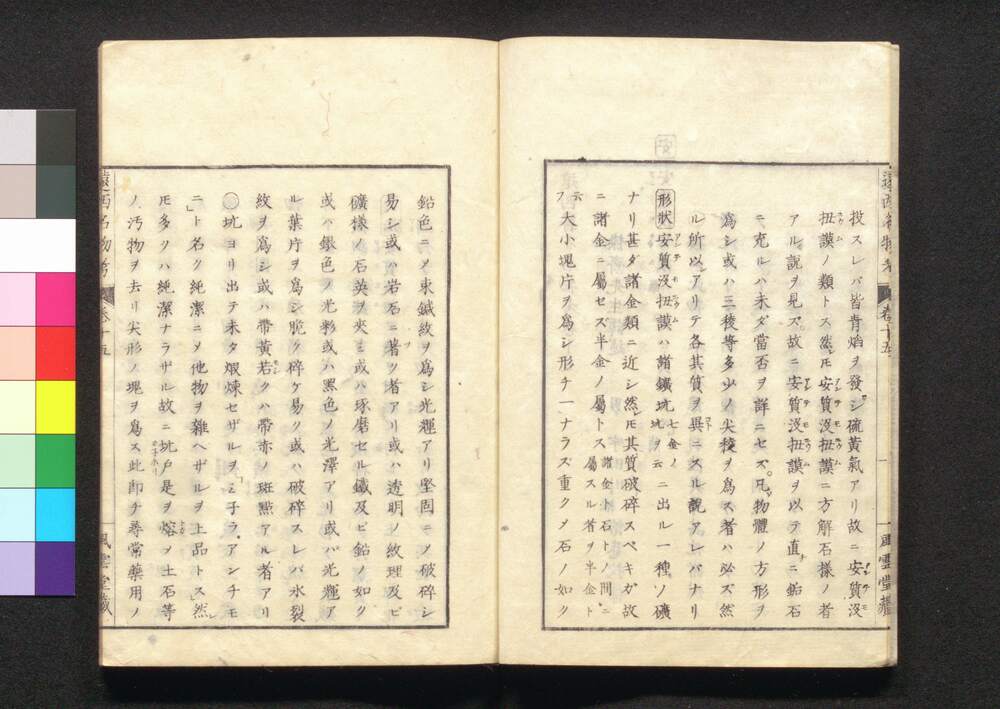 投スレバ皆青焔ヲ發シ硫黄氣アリ故ニ安質沒
扭謨ノ類トス然レ𪜈安質沒扭謨ニ方解石樣ノ者
アル說ヲ見ズ故ニ安質沒扭謨ヲ以テ直ニ鉐石
ニ充ルハ未ダ當否ヲ詳ニセズ凡物體ノ方形ヲ
爲シ或ハ三稜等多少ノ尖稜ヲ爲ス者ハ必ズ然
ル所以アリテ各其質ヲ異ニスル說アレバナリ
形狀 安質沒扭謨ハ諸鑛坑 七金ノ坑ヲ云 ニ出ル一種ノ礦
ナリ甚ダ諸金類ニ近シ然レ𪜈其質破碎スベキガ故
ニ諸金ニ屬セズ半金ノ屬トス 諸金ト石トノ間ニ屬スル者ヲ半金ト云フ
大小塊片ヲ爲シ形チ一ナラズ重クメ石ノ如ク
遠西名物考 卷十五 一 風雲堂藏
鉛色ニメ束鍼紋ヲ爲シ光輝アリ堅固ニメ破碎シ
易シ或ハ岩石ニ著ク者アリ或ハ透明ノ紋理及ビ
礦樣ノ石英ヲ夾ミ或ハ琢磨セル鐵及ビ鉛ノ如ク
或ハ銀色ノ光彩或ハ黑色ノ光澤アリ或ハ光輝ア
ル葉片ヲ爲シ脆ク碎ケ易ク或ハ破碎スレバ氷裂
紋ヲ爲シ或ハ帶黄若クハ帶赤ノ斑㸃アル者アリ
◯坑ヨリ出テ未タ煆煉セザルヲ「ミ子ラアンチモ
ニ」ト名ク純潔ニメ他物ヲ雜ヘザルヲ上品トス然レ
𪜈多クハ純潔ナラザル故ニ坑戸是ヲ熔メ土石等
ノ汚物ヲ去リ尖形ノ塊ヲ爲ス此即チ尋常藥用ノ
遠西名物考 卷十五 一 風雲堂藏